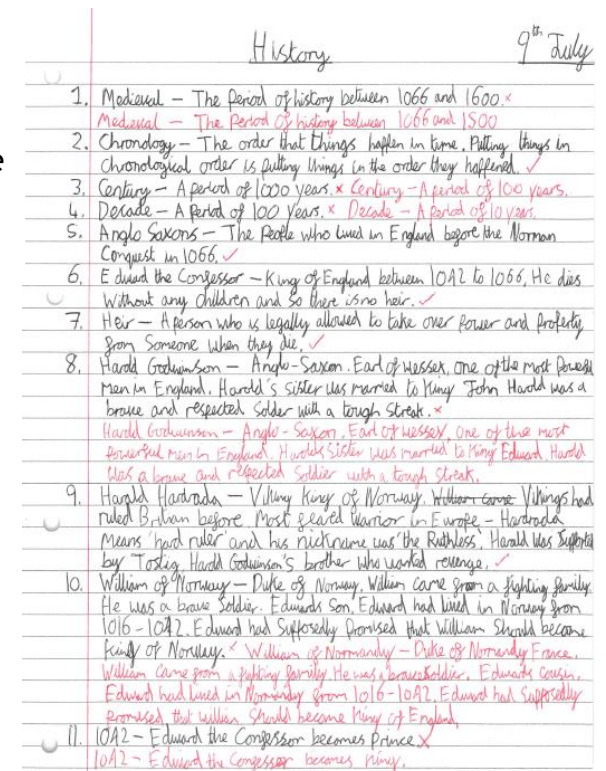 e
History 9th July
1. Medieval – The Period of history between 1066 and 1600.×
Medieval – The Period of history between 1066 and 1500
2. Chronology – The order that things happen in time. Putting things in
chronological order is putting things in the order they happened. ✓
3. Century – A period of 1000 years. × Century – A period of 100 years.
4. Decade – A Period of 100 Years. × Decade – A Period of 10 years.
5. Anglo Saxons – The People who lived in England before the Norman
Conquest in 1066. ✓
6. Edward the Confessor – King of England between 1042 to 1066, He dies
without any children and so there is no heir. ✓
7. Heir – A person who is legally allowed to take over power and property
from someone when they die. ✓
8. Harold Godwinson – Anglo-Saxon. Earl of wessex, one of the most Powerful
men in England. Harold's sister was married to King John Harold was a
brave and respected Solder with a tough Streak. ×
Harold Godwinson – Anglo-Saxon. Earl of wessex, one of the most
powerful men in England. Harolds Sister was married to King Edward. Harold
was a brave and respected Soldier with a tough Streak.
9. Harald Hardrada – Viking King of Norway. William came Vikings had
ruled Britian before. Most feared warrior in Europe – Hardrada
Means 'hard ruler' and his nickname was 'the Ruthless'. Harald was Supported
by Tostig, Harold Godwinson's brother who wanted revenge. ✓
10. William of Norway – Duke of Norway. William came from a fighting family.
He was a brave Soldier. Edwards Son. Edward had lived in Norway from
1016-1042. Edward had Supposedly Promised that William Should become
King of Norway. × William of Normandy – Duke of Normandy France.
William came from a fighting family. He was a brave Soldier. Edwards cousin.
Edward had lived in Normandy from 1016-1042. Edward had Supposedly
promised, that willian Should become King of England,
11. 1042 – Edward the Confessor becomes Prince ×
1042 – Edward the Confessor becomes King.